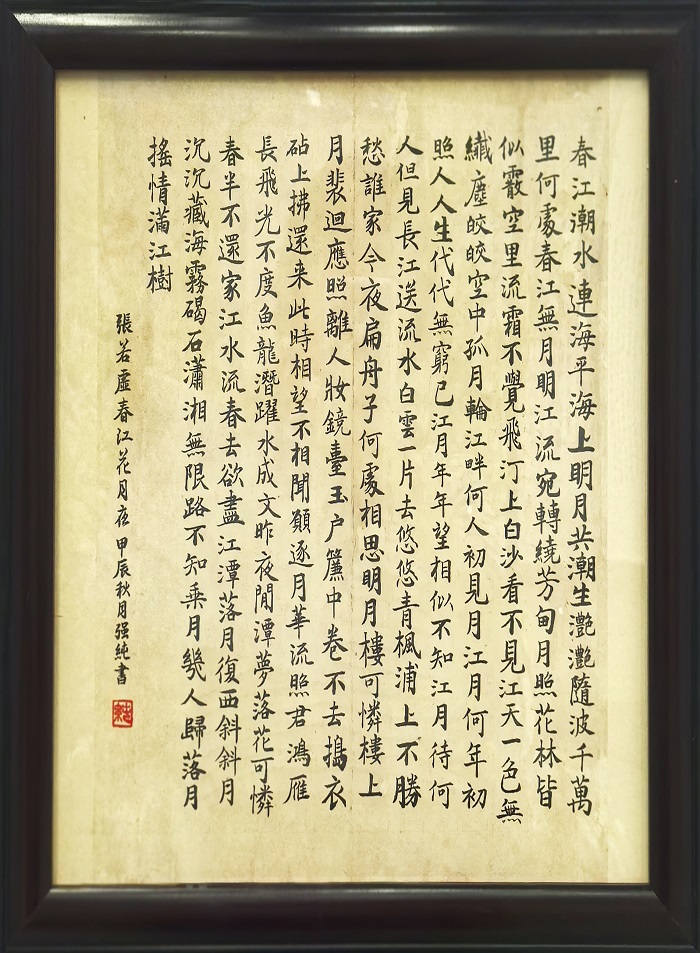 春江潮水連海平海上明月共潮生灔灔隨波千萬
里何處春江無月明江流宛轉繞芳甸月照花林皆
似霰空里流霜不覺飛汀上白沙看不見江天一色無
纖塵皎皎空中孤月輪江畔何人初見月江月何年初
照人人生代代無窮已江月年年望相似不知江月待何
人但見長江送流水白雲一片去悠悠青楓浦上不勝
愁誰家今夜扁舟子何處相思明月樓可憐樓上
月裴迴應照離人妝鏡臺玉户簾中卷不去搗衣
砧上拂還来此時相望不相聞願逐月華流照君鴻雁
長飛光不度魚龍潛躍水成文昨夜閒潭夢落花可憐
春半不還家江水流春去欲盡江潭落月復西斜斜月
沉沉藏海霧碣石瀟湘無限路不知乘月幾人歸落月
搖情滿江樹
張若虛春江花月夜甲辰秋月强純書